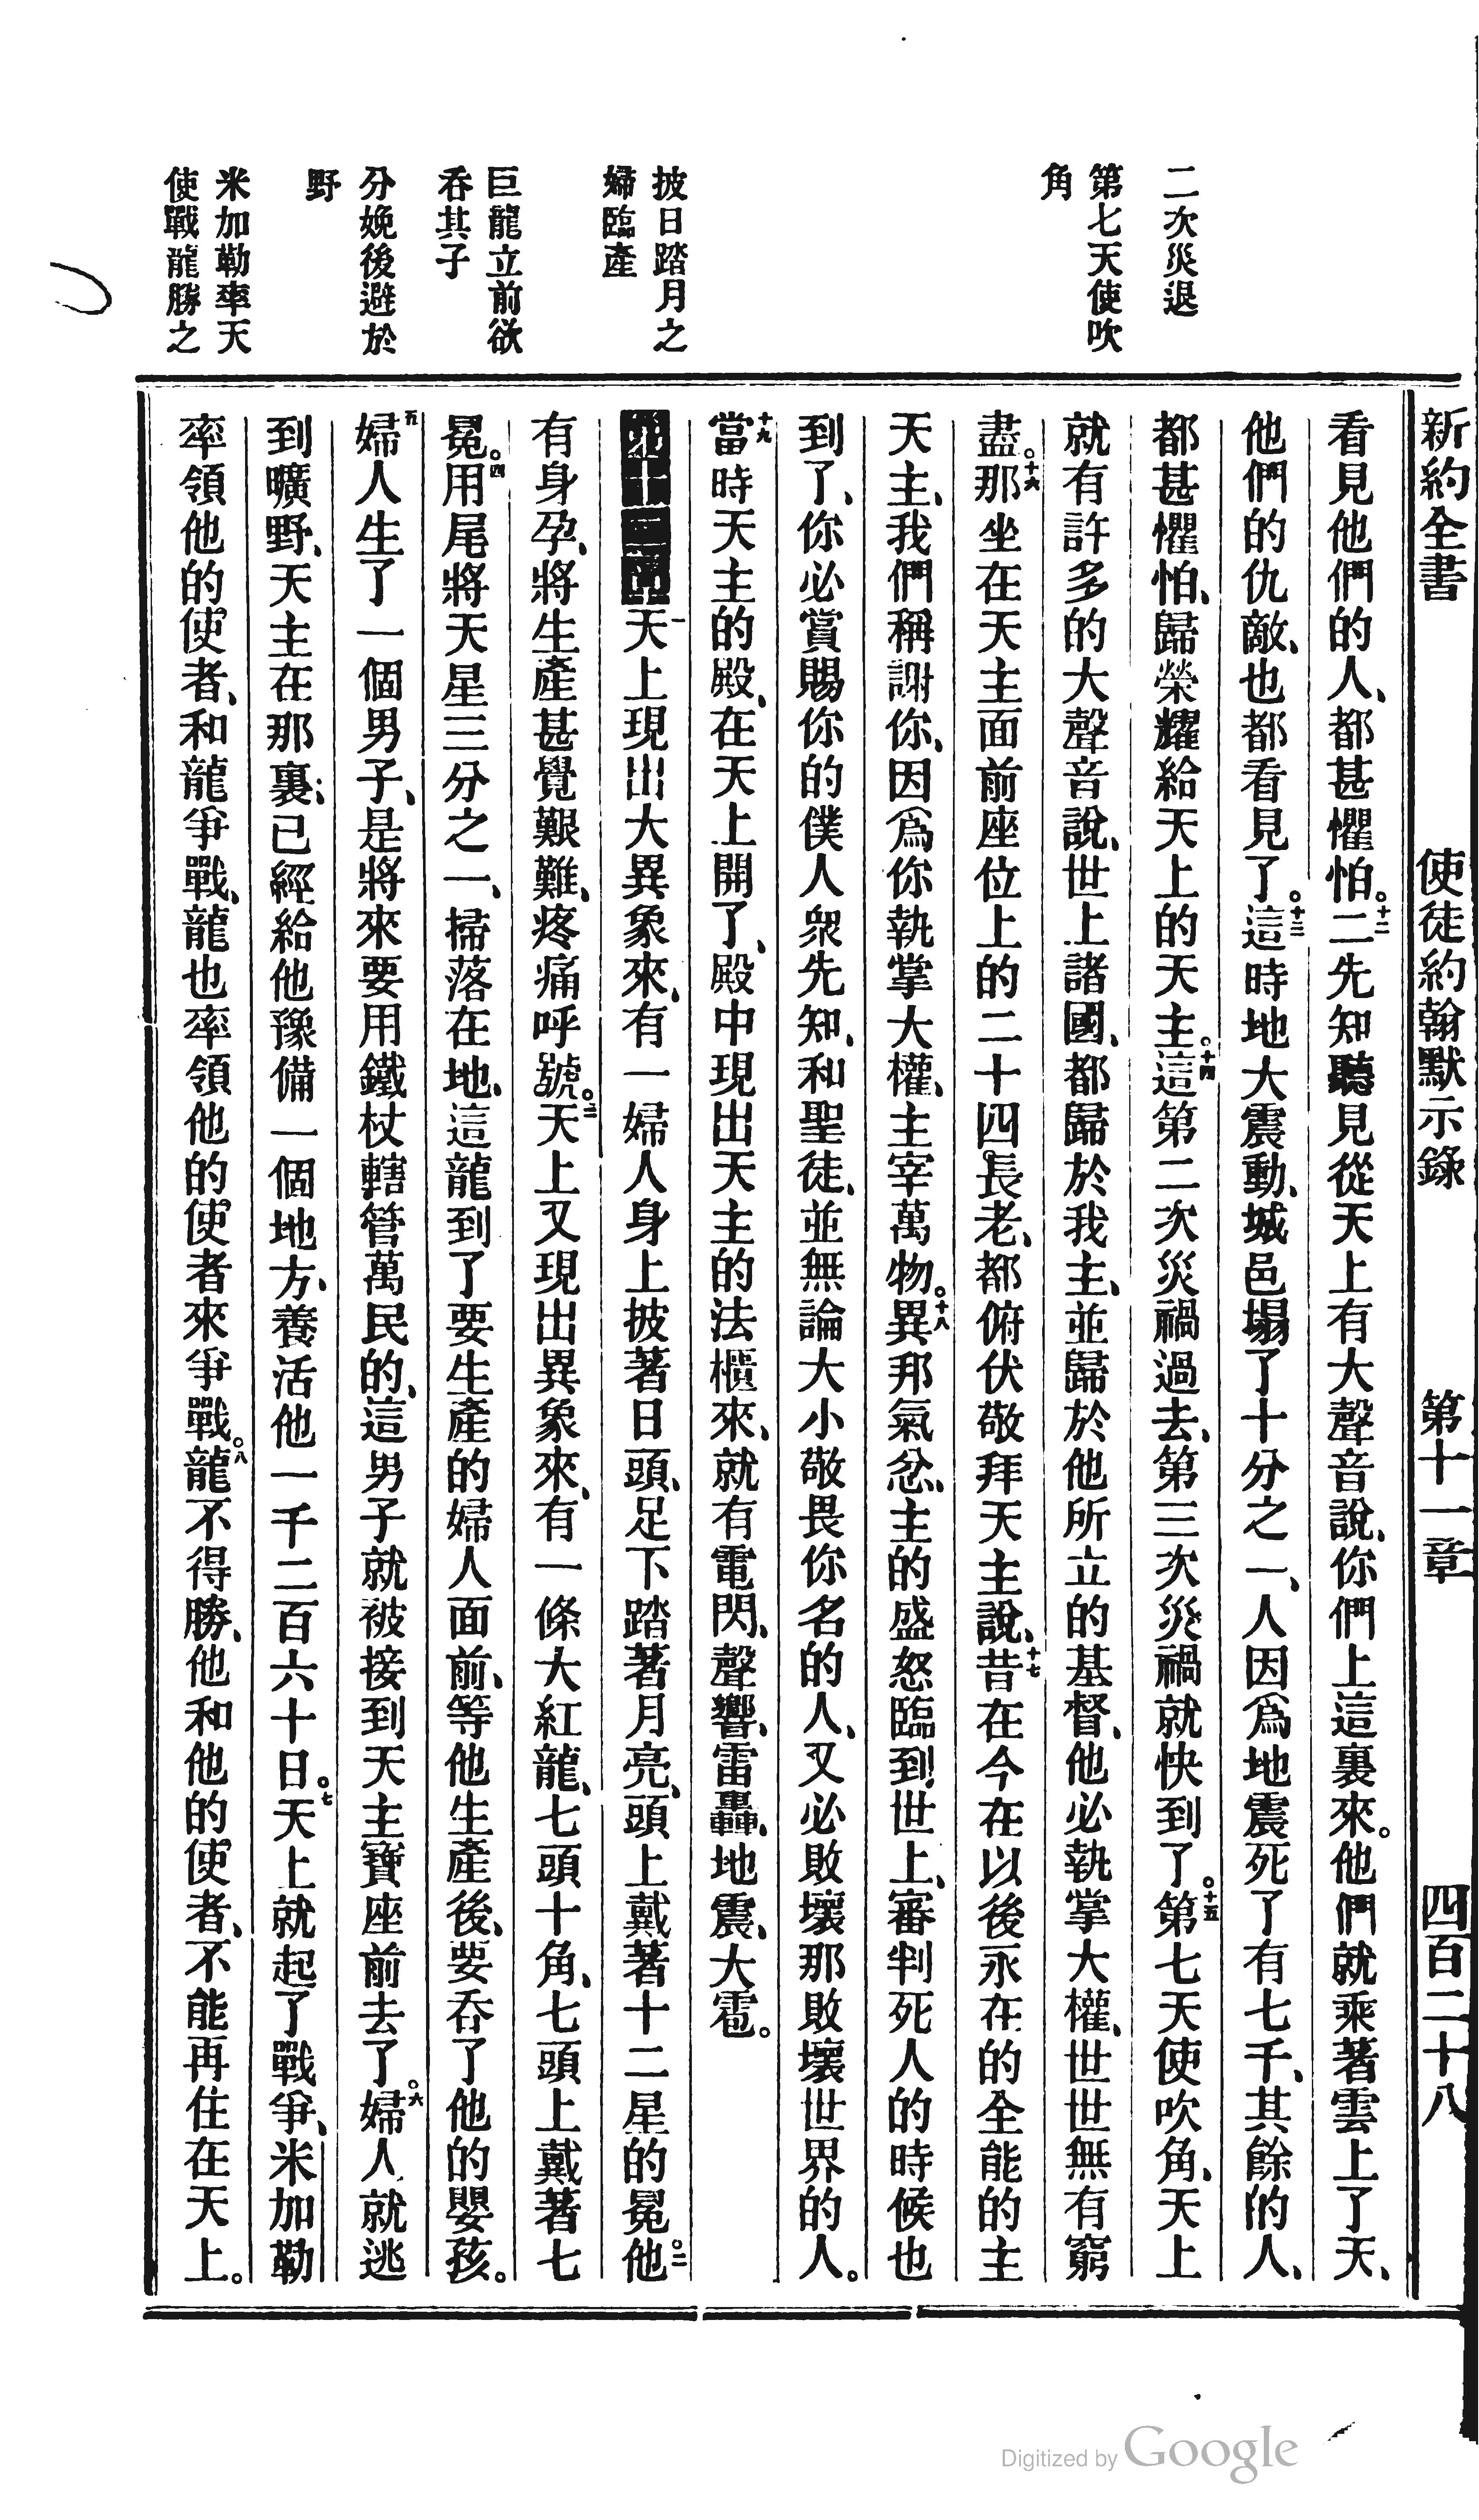 新約全書 使徒約翰默示錄 第十一章 四百二十八
二次災退
第七天使吹
角
披日踏月之
婦臨產
巨龍立前欲
吞其子
分娩後避於
野
米加勒率天
使戰龍勝之
看見他們的人、都甚懼怕。十二二先知聽見從天上有大聲音說、你們上這裏來。他們就乘著雲上了天、
他們的仇敵、也都看見了。十三這時地大震動、城邑塌了十分之一、人因爲地震死了有七千、其餘的人、
都甚懼怕、歸榮耀給天上的天主。十四這第二次災禍過去、第三次災禍就快到了。十五第七天使吹角、天上
就有許多的大聲音說、世上諸國、都歸於我主、並歸於他所立的基督、他必執掌大權、世世無有窮
盡。十六那坐在天主面前座位上的二十四長老、都俯伏敬拜天主說、十七昔在今在以後永在的全能的主
天主、我們稱謝你、因爲你執掌大權、主宰萬物。十八異邦氣忿、主的盛怒臨到世上、審判死人的時候也
到了、你必賞賜你的僕人衆先知、和聖徒、並無論大小敬畏你名的人、又必敗壞那敗壞世界的人。
十九當時天主的殿、在天上開了、殿中現出天主的法櫃來、就有電閃、聲響、雷轟、地震、大雹。
第十二章一天上現出大異象來、有一婦人身上披著日頭、足下踏著月亮、頭上戴著十二星的冕。二他
有身孕、將生產甚覺艱難、疼痛呼號。三天上又現出異象來、有一條大紅龍、七頭十角、七頭上戴著七
冕。四用尾將天星三分之一、掃落在地、這龍到了要生產的婦人面前、等他生產後、要吞了他的嬰孩。
五婦人生了一個男子、是將來要用鐵杖轄管萬民的、這男子就被接到天主寶座前去了。六婦人就逃
到曠野、天主在那裏、已經給他豫備一個地方、養活他一千二百六十日。七天上就起了戰爭、米加勒
率領他的使者、和龍爭戰、龍也率領他的使者來爭戰。八龍不得勝、他和他的使者、不能再住在天上。
Digitized by Google